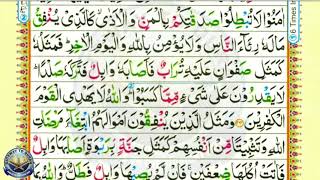 اٰمَنُوْا لَا تُبْطِلُوْا صَدَقٰتِكُمْ بِالْمَنِّ وَالْاَذٰىۙ كَالَّذِیْ یُنْفِقُ
مَالَهٗ رِئَآءَ النَّاسِ وَلَا یُؤْمِنُ بِاللّٰهِ وَالْیَوْمِ الْاٰخِرِؕ فَمَثَلُهٗ
كَمَثَلِ صَفْوَانٍ عَلَیْهِ تُرَابٌ فَاَصَابَهٗ وَابِلٌ فَتَرَكَهٗ صَلْدًاؕ لَا
یَقْدِرُوْنَ عَلٰى شَیْءٍ مِّمَّا كَسَبُوْاؕ وَاللّٰهُ لَا یَهْدِی الْقَوْمَ
الْكٰفِرِیْنَ وَمَثَلُ الَّذِیْنَ یُنْفِقُوْنَ اَمْوَالَهُمُ ابْتِغَآءَ مَرْضَاتِ
اللّٰهِ وَتَثْبِیْتًا مِّنْ اَنْفُسِهِمْ كَمَثَلِ جَنَّةٍۭ بِرَبْوَةٍ اَصَابَهَا وَابِلٌ
فَاٰتَتْ اُكُلَهَا ضِعْفَیْنِۚ فَاِنْ لَّمْ یُصِبْهَا وَابِلٌ فَطَلٌّؕ وَاللّٰهُ بِمَا